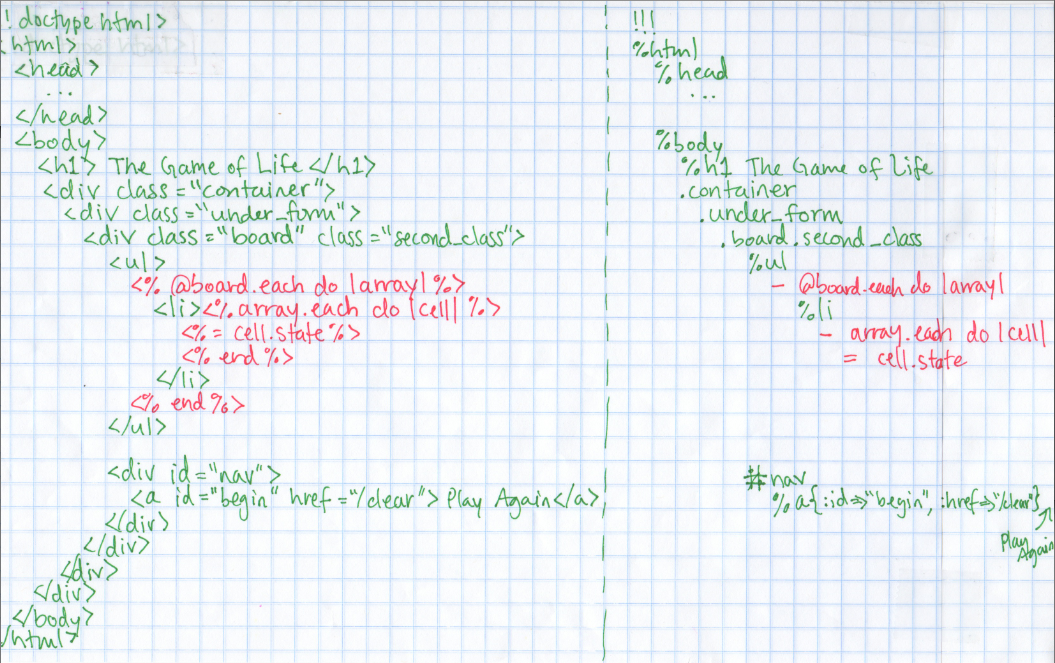 ! doctype html>
html>
<head>
...
</head>
<body>
<h1> The Game of Life </h1>
<div class="container">
<div class="under_form">
<div class="board" class="second_class">
<ul>
<% @board.each do |array| %>
<li><% array.each do |cell| %>
<%= cell.state %>
<% end %>
</li>
<% end %>
</ul>
<div id="nav">
<a id="begin" href="/clear"> Play Again</a>
</div>
</div>
</div>
</div>
</body>
/html>
!!!
%html
%head
...
%body
%h1 The Game of Life
.container
.under_form
.board.second_class
%ul
- @board.each do |array|
%li
- array.each do |cell|
= cell.state
#nav
%a{:id=>"begin", :href=>"/clear"}
Play
Again